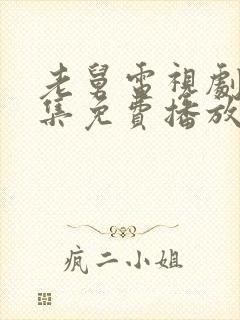 老舅電視劇
集免費播放
疯二小姐